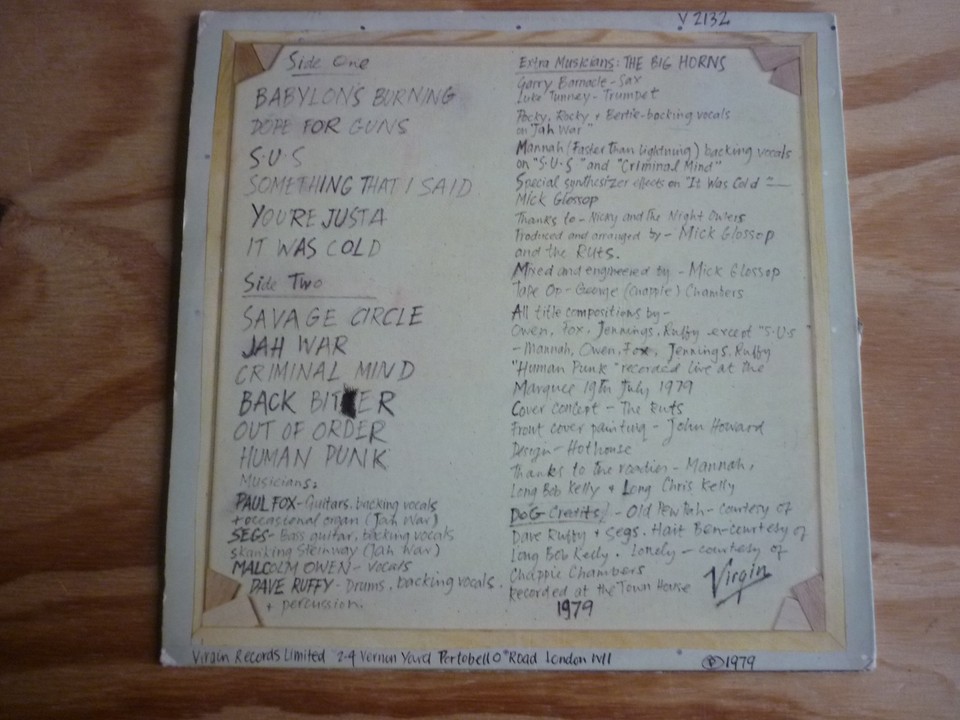 V 2132
Side One
BABYLON'S BURNING
DOPE FOR GUNS
S.U.S
SOMETHING THAT I SAID
YOU'RE JUST A
IT WAS COLD
Side Two
SAVAGE CIRCLE
JAH WAR
CRIMINAL MIND
BACK BITER
OUT OF ORDER
HUMAN PUNK
Musicians:
PAUL FOX - Guitars, backing vocals
+ occasional organ (Jah War)
SEGS - Bass guitar, backing vocals
skanking Steinway (Jah War)
MALCOLM OWEN - Vocals
DAVE RUFFY - Drums, backing vocals.
+ percussion.
Extra Musicians: THE BIG HORNS
Garry Barnacle - Sax
Luke Tunney - Trumpet
Pocky, Rocky + Bertie - backing vocals
on "Jah War"
Mannah (Faster than lightning) backing vocals
on "S.U.S" and "Criminal Mind"
Special synthesizer effects on "It Was Cold" -
Mick Glossop
Thanks to - Nicky and The Night Owlers
Produced and arranged by - Mick Glossop
and the Ruts.
Mixed and engineered by - Mick Glossop
Tape Op - George (Chappie) Chambers
All title compositions by -
Owen, Fox, Jennings, Ruffy except "S.U.S"
- Mannah, Owen, Fox, Jennings, Ruffy
"Human Punk" recorded live at the
Marquee 19th July 1979
Cover concept - The Ruts
Front cover painting - John Howard
Design - Hothouse
Thanks to the roadies - Mannah,
Long Bob Kelly + Long Chris Kelly
DOG Credits! - Old Pewtah - courtesy of
Dave Ruffy + Segs. Hait Ben - courtesy of
Long Bob Kelly. Lonely - courtesy of
Chappie Chambers
Recorded at the Town House
1979
Virgin
Virgin Records Limited 2-4 Vernon Yard Portobello Road London W11
Ⓟ 1979